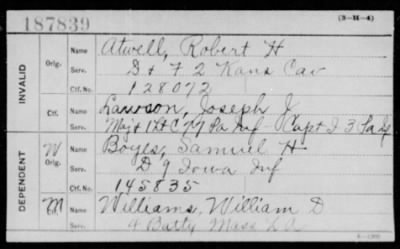 187839
(3-H-4)
INVALID
Orig.
Name Atwell, Robert H
Serv. D & F 2 Kans Cav
Ctf. No. 128072
Name Lawson, Joseph J.
Serv. Maj & 1 Lt C 77 Pa Inf Capt I 3 Pa
DEPENDENT
W
Orig. Name Boyes, Samuel H
Serv. D 9 Iowa Inf
Ctf. No. 145835
M Name Williams, William D
Serv. 4 Batty Mass L A